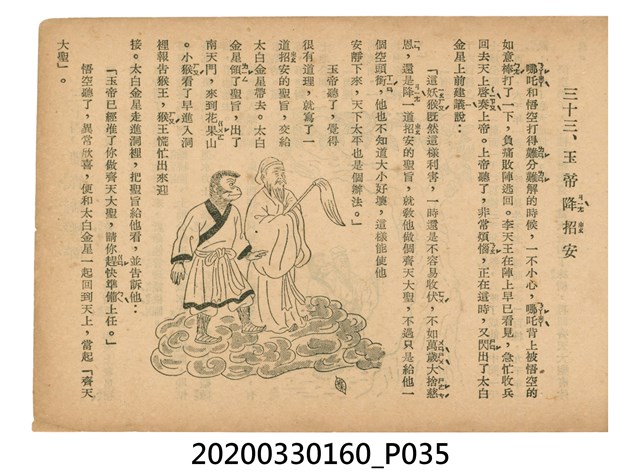 三十三、玉帝降招安
哪吒和悟空打得難分難解的時候，一不小心，哪吒背上被悟空的
如意棒打了一下，負痛敗陣逃回。李天王在陣上早已看見，急忙收兵
回去天上啓奏上帝。上帝聽了，非常煩惱，正在這時，又閃出了太白
金星上前建議說：
「這妖猴既然這樣利害，一時還是不容易收伏，不如萬歲大捨慈
恩，還是降一道招安的聖旨，就敎他做個齊天大聖，不過只是給他一
個空頭銜，他也不知道大小好壞，這樣能使他
安靜下來，天下太平也是個辦法。」
玉帝聽了，覺得
很有道理，就寫了一
道招安的聖旨，交給
太白金星帶去。太白
金星領了聖旨，出了
南天門，來到花果山
。小猴看了早進入洞
裡報告猴王，猴王慌忙出來迎
接。太白金星走進洞裡，把聖旨給他看，並告訴他：
「玉帝已經准了你做齊天大聖，請你趕快準備上任。」
悟空聽了，異常欣喜，便和太白金星一起回到天上，當起「齊天
大聖」。
20200330160_P035